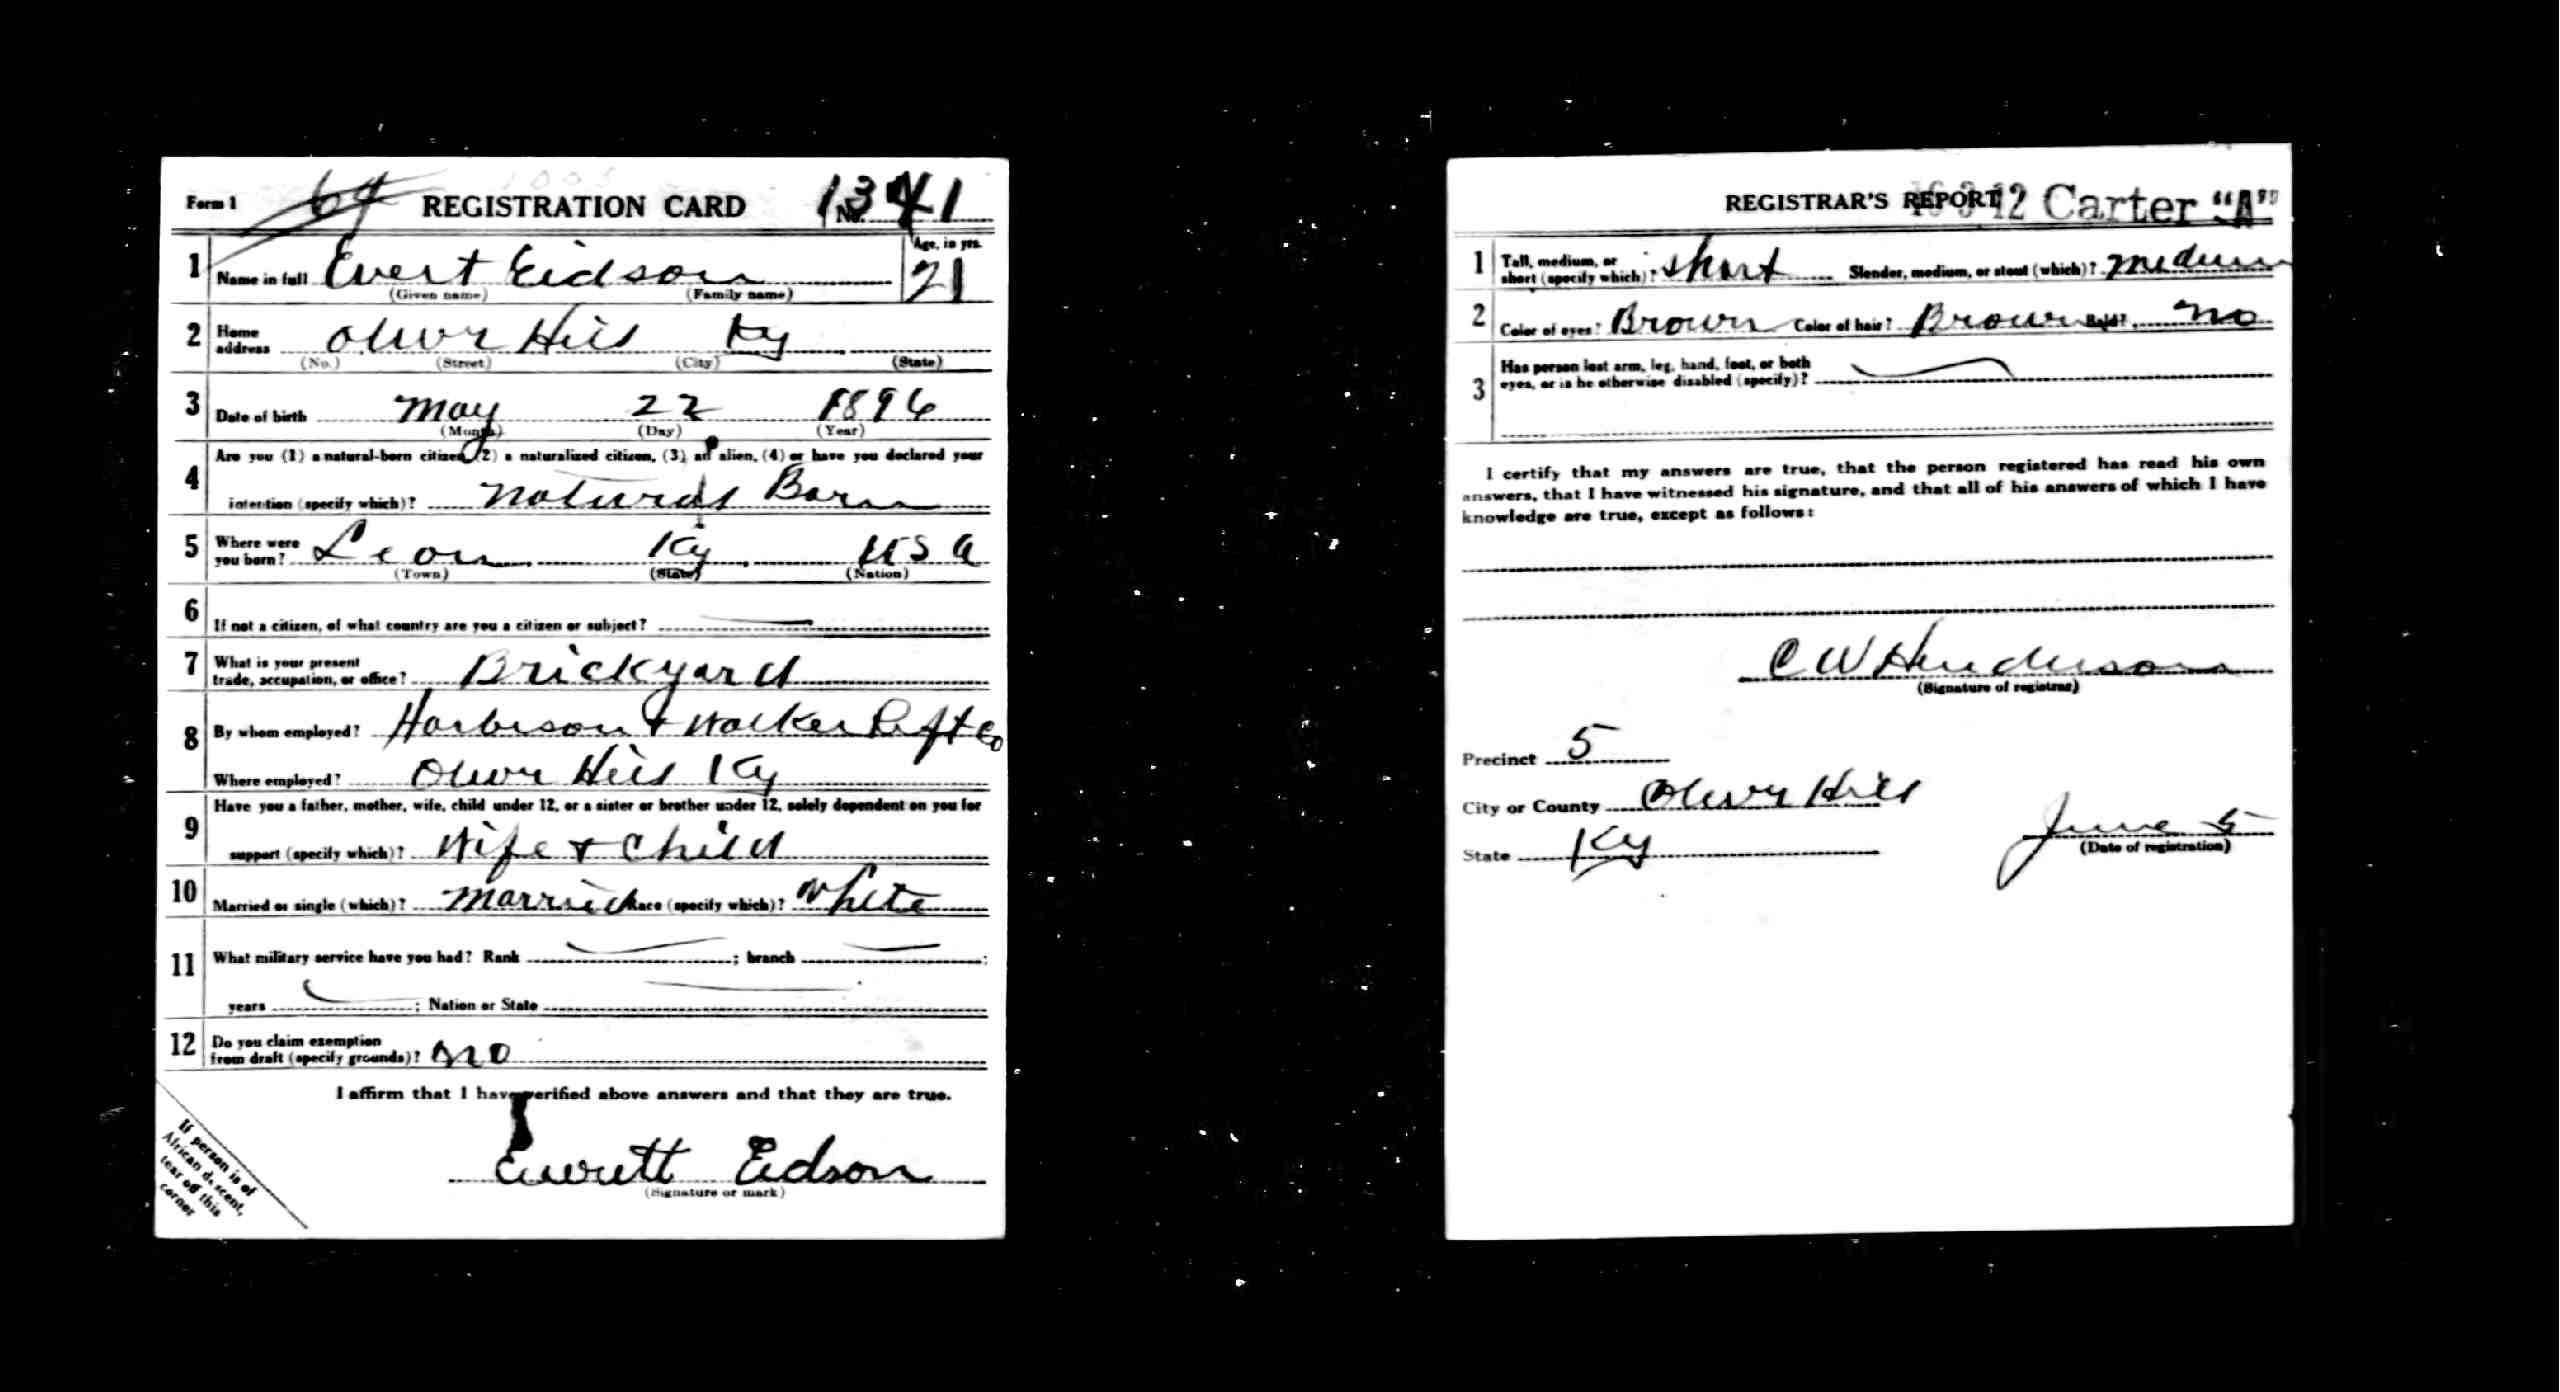 Form 1 64 REGISTRATION CARD No. 1341
1 Name in full Evert Eidson Age, in yrs. 21
(Given name) (Family name)
2 Home address Olive Hill Ky
(No.) (Street) (City) (State)
3 Date of birth May 22 1896
(Month) (Day) (Year)
4 Are you (1) a natural-born citizen, (2) a naturalized citizen, (3) an alien, (4) or have you declared your
intention (specify which)? Natural Born
5 Where were you born? Leon Ky USA
(Town) (State) (Nation)
6 If not a citizen, of what country are you a citizen or subject?
7 What is your present trade, occupation, or office? Brickyard
8 By whom employed? Harbison + Walker Reft Co
Where employed? Olive Hill Ky
9 Have you a father, mother, wife, child under 12, or a sister or brother under 12, solely dependent on you for
support (specify which)? Wife + Child
10 Married or single (which)? Married Race (specify which)? White
11 What military service have you had? Rank ; branch ;
years ; Nation or State
12 Do you claim exemption from draft (specify grounds)? No
I affirm that I have verified above answers and that they are true.
Everett Eidson
(Signature or mark)
If person is of
African descent,
tear off this
corner
REGISTRAR'S REPORT 12 Carter "A"
1 Tall, medium, or short (specify which)? Short Slender, medium, or stout (which)? Medium
2 Color of eyes? Brown Color of hair? Brown Bald? No
3 Has person lost arm, leg, hand, foot, or both
eyes, or is he otherwise disabled (specify)?
I certify that my answers are true, that the person registered has read his own
answers, that I have witnessed his signature, and that all of his answers of which I have
knowledge are true, except as follows:
C W Henderson
(Signature of registrar)
Precinct 5
City or County Olive Hill
State Ky
June 5
(Date of registration)